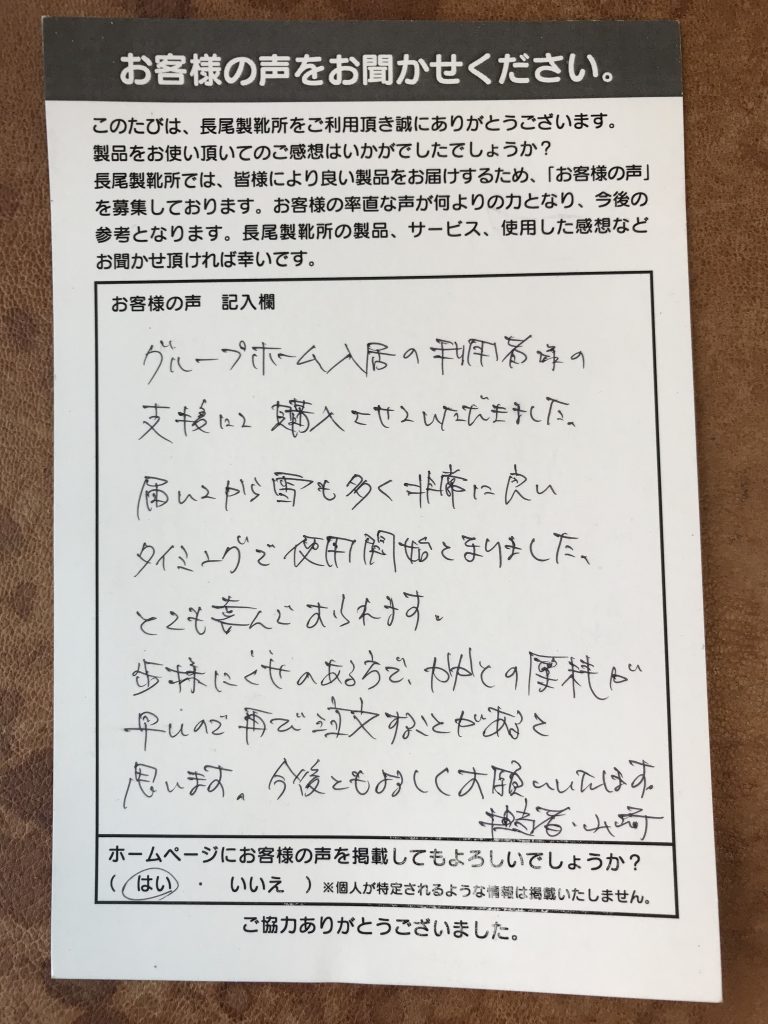 お客様の声をお聞かせください。
このたびは、長尾製靴所をご利用頂き誠にありがとうございます。
製品をお使い頂いてのご感想はいかがでしたでしょうか？
長尾製靴所では、皆様により良い製品をお届けするため、「お客様の声」
を募集しております。お客様の率直な声が何よりの力となり、今後の
参考となります。長尾製靴所の製品、サービス、使用した感想など
お聞かせ頂ければ幸いです。
お客様の声　記入欄
グループホーム入居の利用者様の
支援にて購入させていただきました。
届いてから雪も多く非常に良い
タイミングで使用開始となりました。
とても喜んでおられます。
歩様にくせのある方で、かかとの摩耗が
早いので再び注文することがあると
思います。今後ともよろしくお願いいたします。
担当者・山崎
ホームページにお客様の声を掲載してもよろしいでしょうか？
（ はい ・ いいえ ）※個人が特定されるような情報は掲載いたしません。
ご協力ありがとうございました。